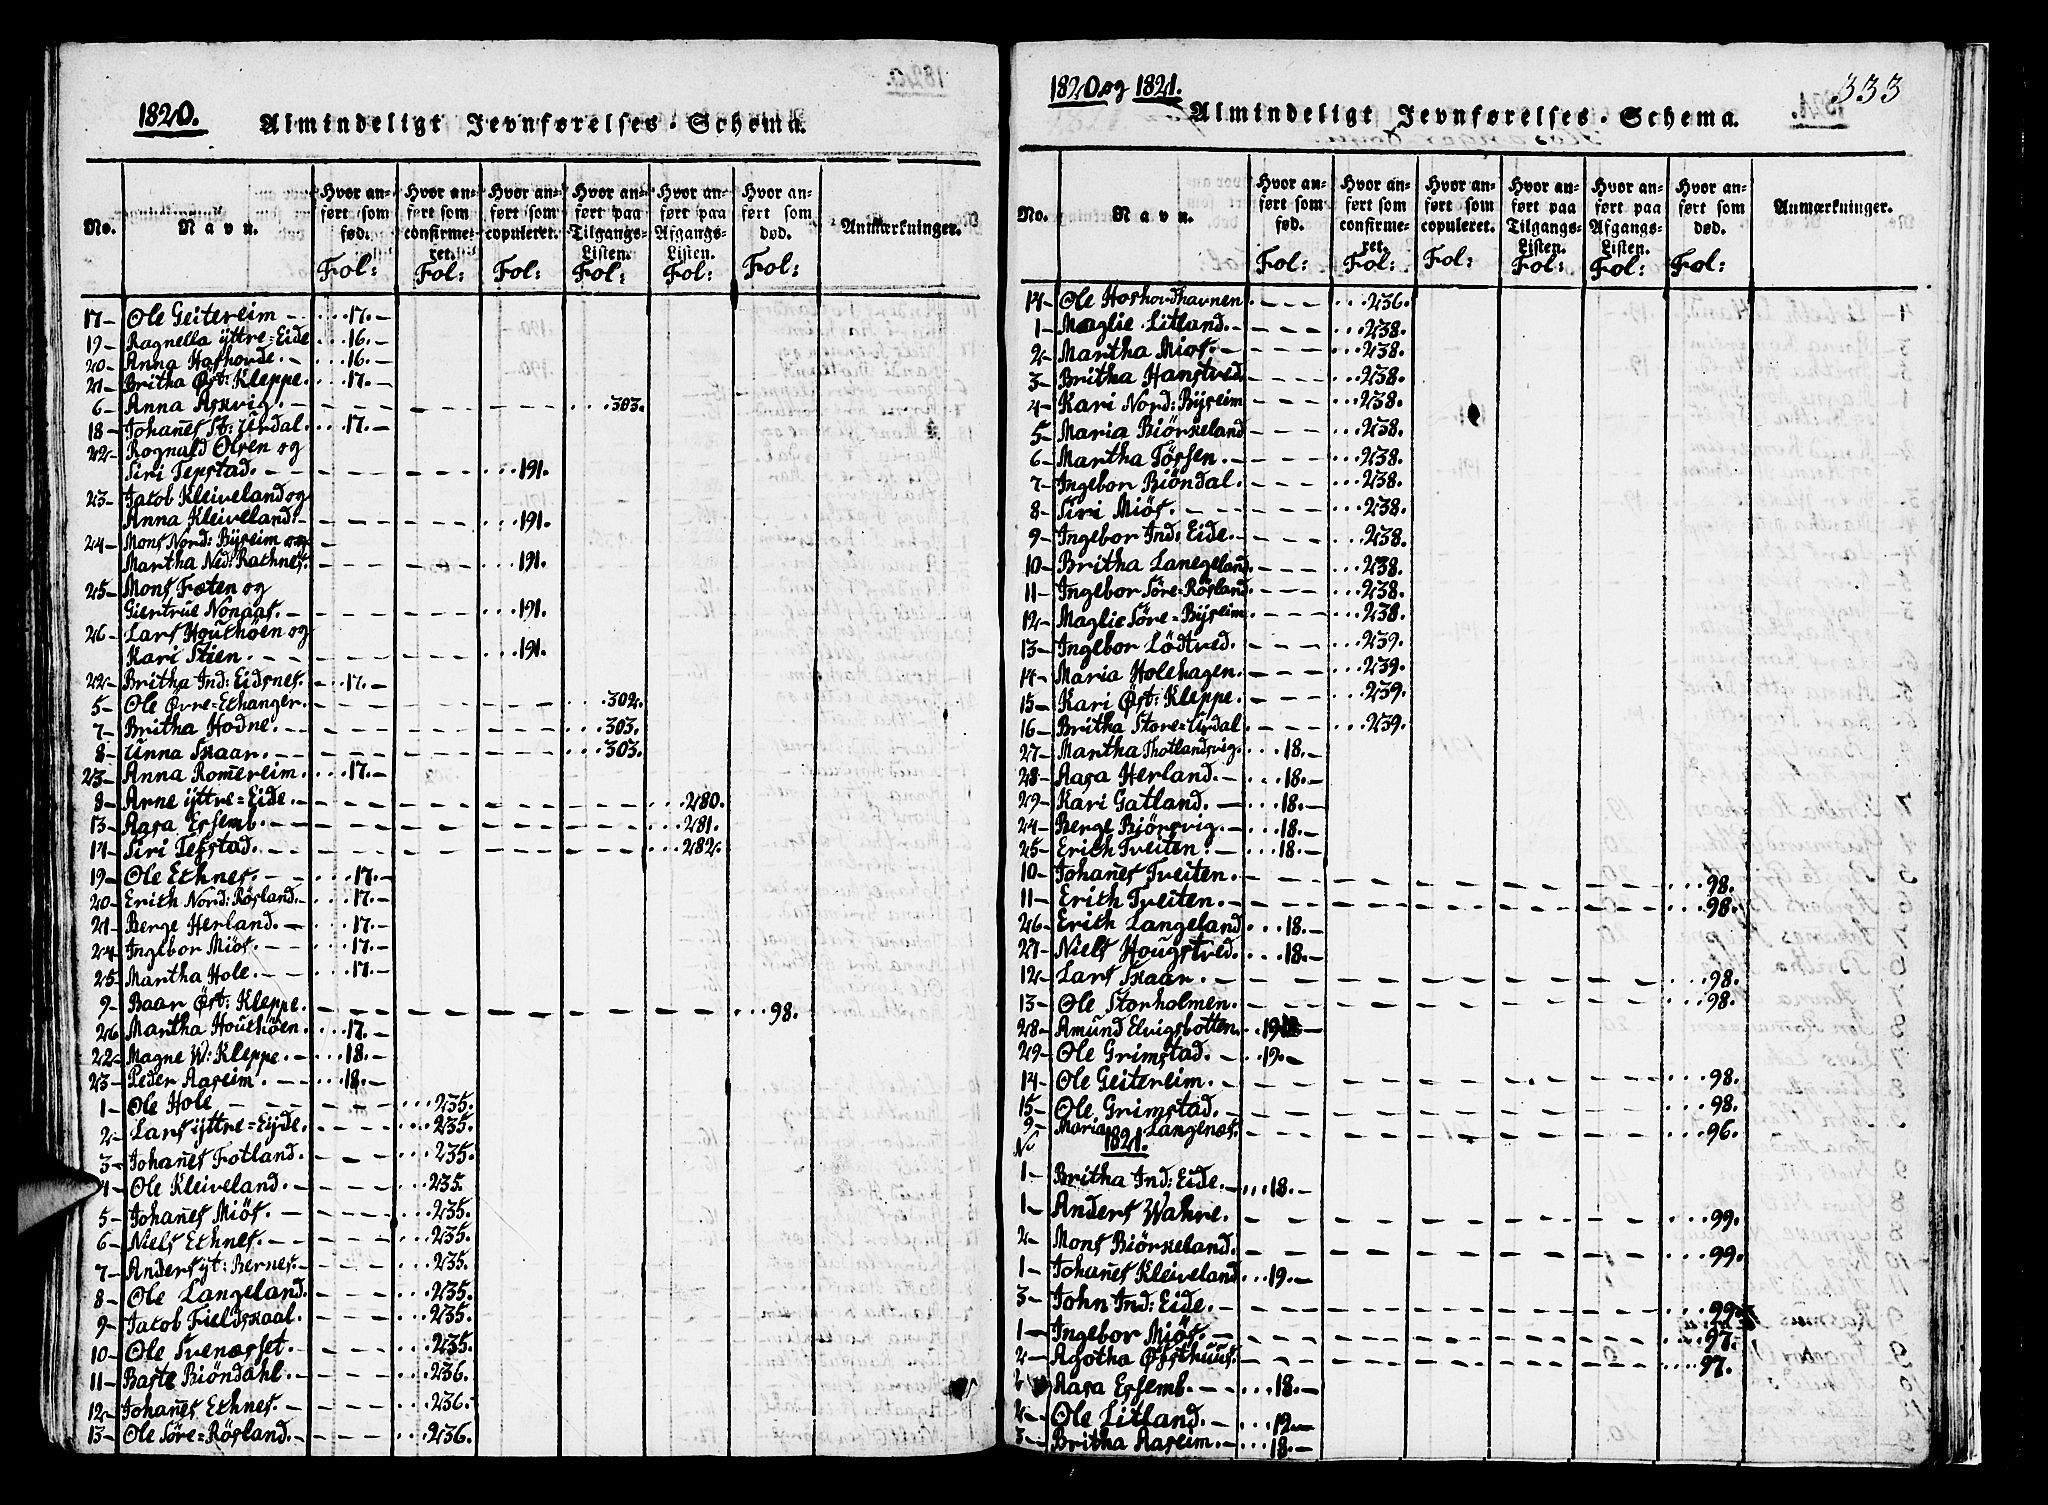 1820.
Almindeligt Jevnførelses-Schema.
No. Navn. Hvor anført som fød. Fol: Hvor anført som confirmeret. Fol: Hvor anført som copuleret. Fol: Hvor anført paa Tilgangs-Listen. Fol: Hvor anført paa Afgangs-Listen. Fol: Hvor anført som død. Fol: Anmærkninger.
17 Ole Geitereim 17.
19 Ragnella ijttre=Eide 16.
20 Anna Hafhovde. 16.
21 Britha Øst: Kleppe. 17.
6 Anna Askvig. 303.
18 Johan̄es St: Urdal. 17.
22 Rognald Olsen og
Siri Tepstad. 191.
23 Jacob Kleiveland og
Anna Kleiveland. 191.
24 Mons Nord: Bÿseim og
Martha Ned: Rathnes. 191.
25 Mons Foten og
Giertrue Nonaas. 191.
26 Lars Houthöen og
Kari Stien. 191.
22 Britha Ind: Eidsnes. 17.
5 Ole Øvre=Echanger. 302.
7 Britha Hodne. 303.
8 Unna Skaar. 303.
23 Anna Rom̄ereim. 17.
8 Arne ijttre=Eide. 280.
13 Aasa Essemb. 281.
14 Siri Tepstad. 282.
19 Ole Echnes. 17.
20 Erich Nord: Rösland. 17.
21 Berge Herland. 17.
24 Ingebor Miös. 17.
25 Martha Hole. 17.
9 Baar Öst: Kleppe. 98.
26 Martha Houthöen. 17.
22 Magne W: Kleppe. 18.
23 Peder Aaseim. 18.
1 Ole Hole 235.
2 Lars ijttre=Eijde. 235.
3 Johan̄es Fotland. 235.
4 Ole Kleiveland. 235.
5 Johan̄es Miös. 235.
6 Niels Echnes. 235.
7 Anders ijt: Bernes. 235.
8 Ole Langeland. 235.
9 Jacob Fieldskaal. 235.
10 Ole Svenasset. 235.
11 Baste Biöndahl. 236.
12 Johan̄es Echnes. 236.
13 Ole Söre=Rösland. 236.
1820 og 1821.
333
Almindeligt Jevnførelses-Schema.
No. Navn. Hvor anført som fød. Fol: Hvor anført som confirmeret. Fol: Hvor anført som copuleret. Fol: Hvor anført paa Tilgangs-Listen. Fol: Hvor anført paa Afgangs-Listen. Fol: Hvor anført som død. Fol: Anmærkninger.
14 Ole Hoshovdhavnen 236.
1 Maglie Litland. 238.
2 Martha Mios. 238.
3 Britha Hanstved. 238.
4 Kari Nord: Bÿseim 238.
5 Maria Biörkeland 238.
6 Martha Tössen. 238.
7 Ingebor Biöndal. 238.
8 Siri Miös. 238.
9 Ingebor Ind: Eide. 238.
10 Britha Langeland. 238.
11 Ingebor Söre=Rösland. 238.
12 Maglie Söre=Bÿseim 238.
13 Ingebor Lödtved. 239.
14 Maria Holehagen. 239.
15 Kari Öst: Kleppe. 239.
16 Britha Store=Urdal. 239.
27 Martha Thotlandsvig. 18.
28 Aasa Herland. 18.
29 Kari Gatland. 18.
24 Berge Biörsvig. 18.
25 Erich Tveiten. 18.
10 Johan̄es Tveiten. 98.
11 Erich Tveiten. 98.
26 Erich Langeland 18.
27 Niels Hougstved. 18.
12 Lars Skaar. 98.
13 Ole Storholmen. 98.
28 Amund Elvigsbotten. 19
29 Ole Grimstad. 19.
14 Ole Geitereim. 98.
15 Ole Grimstad. 98.
9 Maria Langenæs. 96.
No 1821.
1 Britha Ind: Eide. 18.
1 Anders Wahre. 99.
2 Mons Biörkeland. 99.
1 Johan̄es Kleiveland 19.
3 John Ind: Eide. 99.
1 Ingebor Miös. 97.
2 Agotha Össthuus. 97.
2 Aasa Essemb. 18.
2 Ole Litland. 19
3 Britha Aaseim. 18.